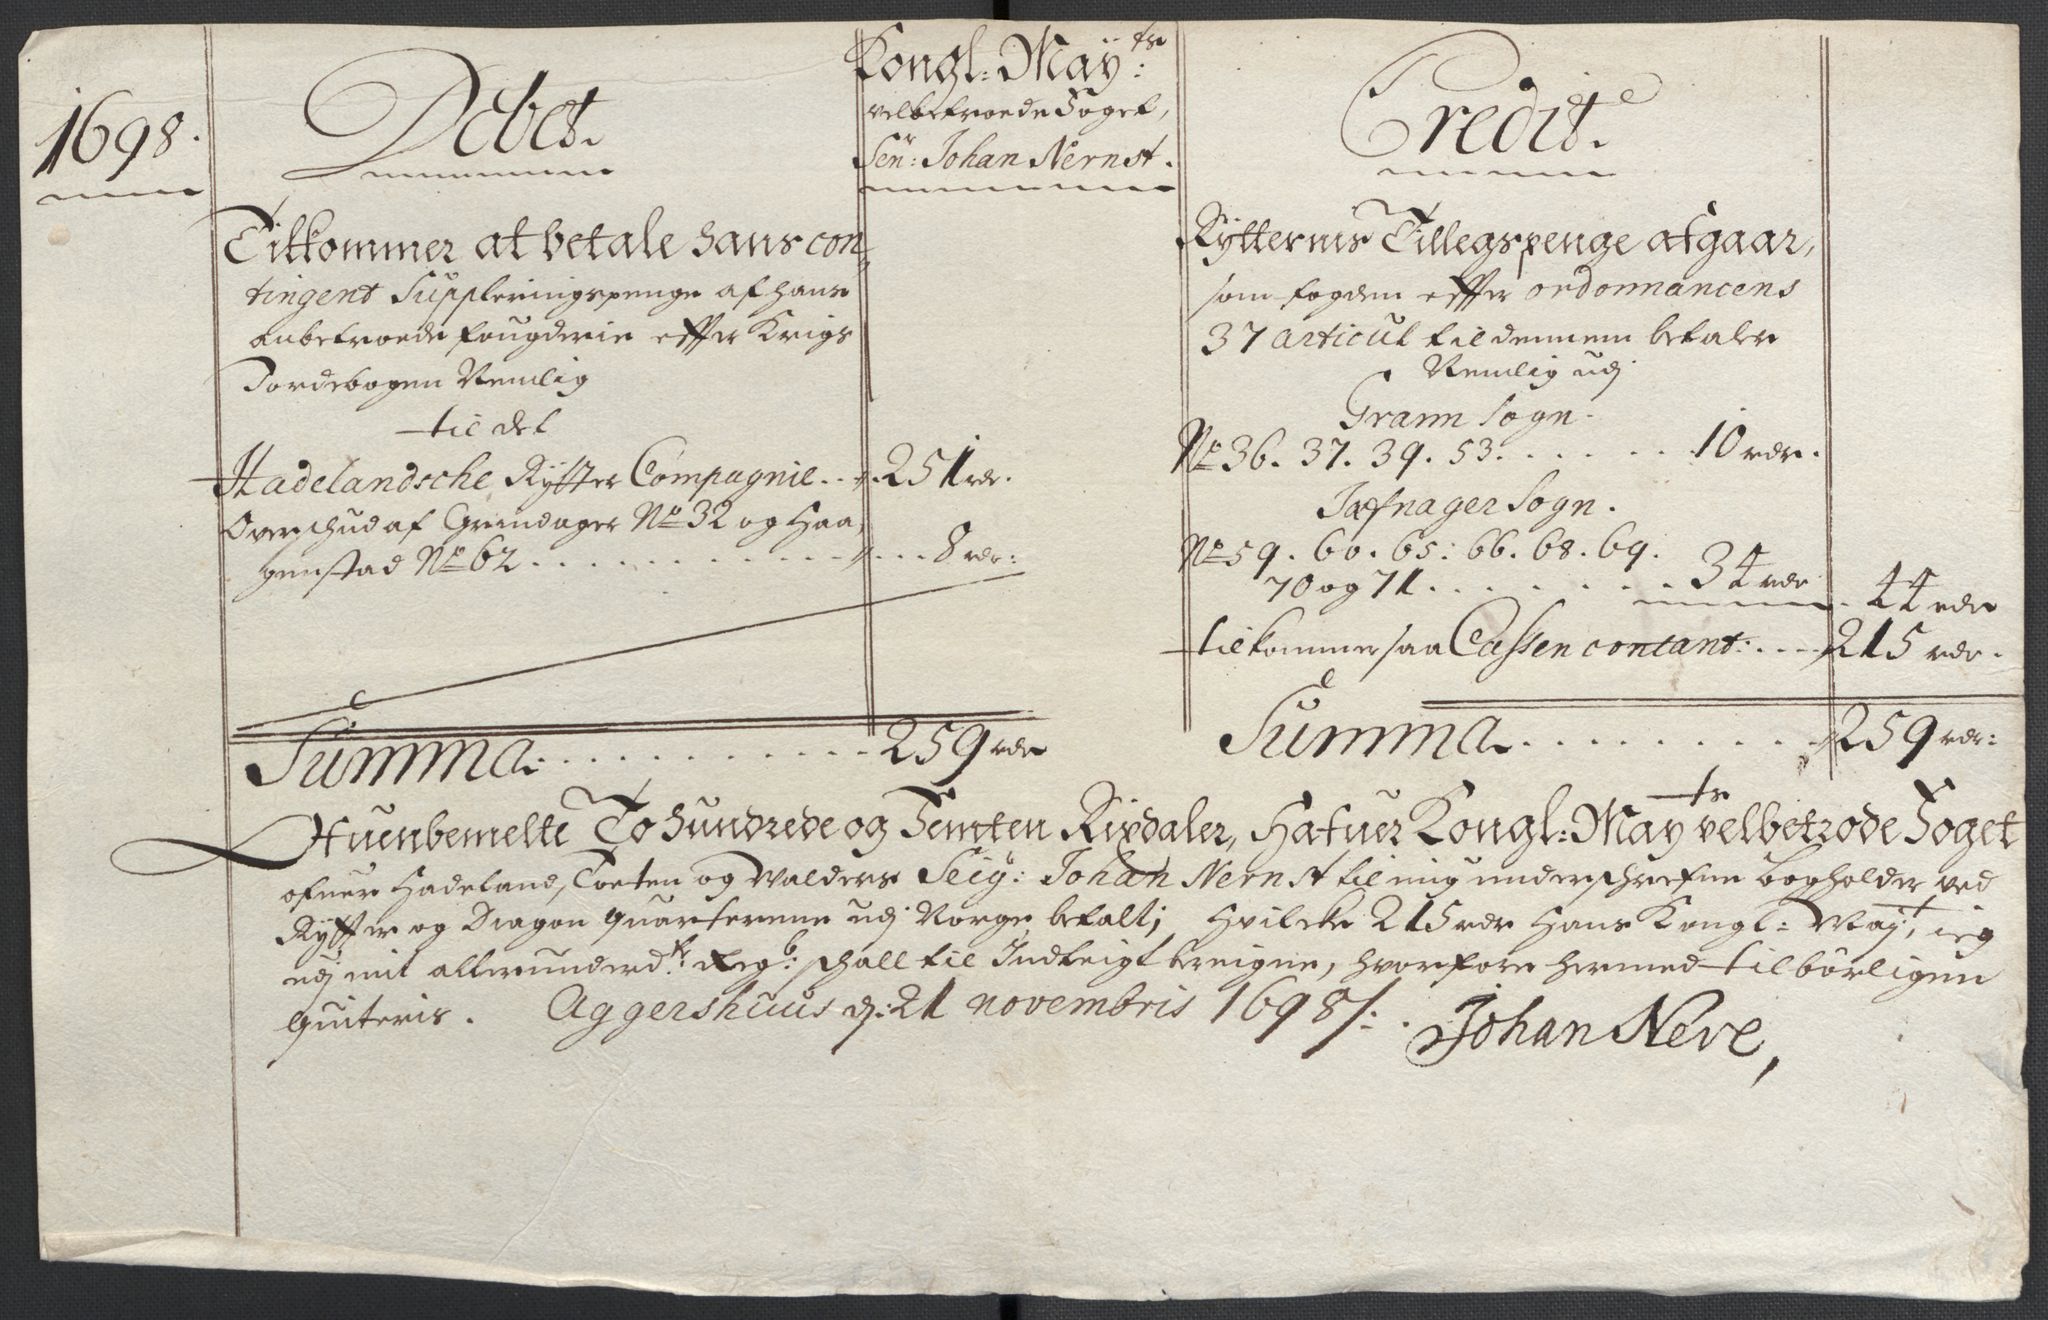 1698.
Debet.
Kongl: Maÿ:ts
velbetroede Foget,
Senr: Johan Nernst.
Credit.
Tilkommer at betale hans con,
tingent Suppleringspenge af hans
anbetroede fougderie effter Krigs
Jordebogen Nemlig
til det
Hadelandsche Rytter Compagnie . . . 251 rdr.
Overschud af Grindager No 32 og Haa,
genstad No 62 . . . . . . . . . . . . 8 rdr:
Summa . . . . . . . . . . . 259 rdr
Rytternis Tillegspenge afgaar,
som fogden effter ordonnancens
37 articul til dennem betaler
Nemlig udj
Grann Sogn.
No 36. 37. 39. 53. . . . . . . 10 rdr.
Jæfnager Sogn.
No 59. 60. 65: 66. 68. 69.
70 og 71. . . . . . . . 34 rdr . 44 rdr
tilkommer saa Cassen contant: . . . . 215 rdr.
Summa . . . . . . . . . . 259 rdr:
Huenbemelte To Hundrede og Femten Rixdaler, Hafuer Kongl: Maÿts velbetrode Foget
ofuer Hadeland, Toeten og Walders Seig: Johan Nernst til mig underschrefne bogholder ved
Rytter og Dragon quarterene udj Norge betalt; Hvilcke 215 rdr Hans Kongl: Maÿt, ieg
udj mit allerunderd: Regb: schall til Indteigt breigne, hvorfore hermed tilbørligen
quiteris. Aggershuus d: 21 novembris 1698 /: .
Johan Neve,